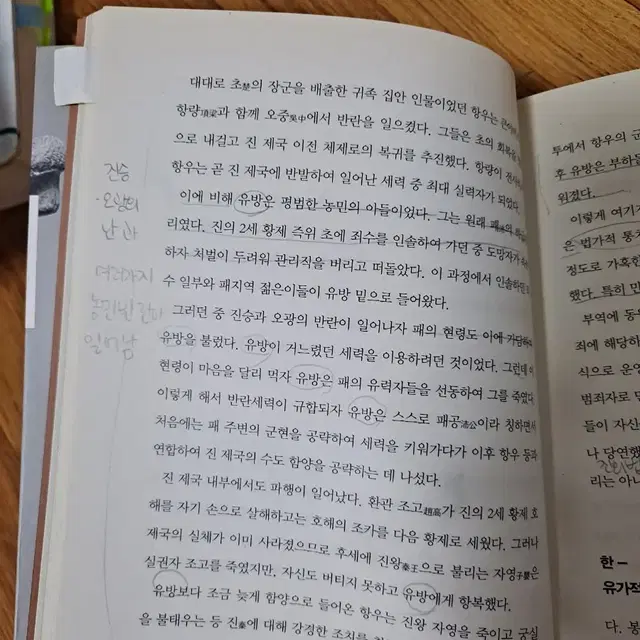 대대로 초楚의 장군을 배출한 귀족 집안 인물이었던 항우는
항량項梁과 함께 오중吳中에서 반란을 일으켰다. 그들은 초의 회복을
으로 내걸고 진 제국 이전 체제로의 복귀를 추진했다. 항량이
항우는 곧 진 제국에 반발하여 일어난 세력 중 최대 실력자가 되었다.
이에 비해 유방은 평범한 농민의 아들이었다. 그는 원래 패
리였다. 진의 2세 황제 즉위 초에 죄수를 인솔하여 가던 중 도망자가
하자 처벌이 두려워 관리직을 버리고 떠돌았다. 이 과정에서 인솔하던
수 일부와 패지역 젊은이들이 유방 밑으로 들어왔다.
그러던 중 진승과 오광의 반란이 일어나자 패의 현령도 이에 가담하여
유방을 불렀다. 유방이 거느렸던 세력을 이용하려던 것이었다. 그런데
현령이 마음을 달리 먹자 유방은 패의 유력자들을 선동하여 그를 죽였다.
이렇게 해서 반란세력이 규합되자 유방은 스스로 패공沛公이라 칭하면서
처음에는 패 주변의 군현을 공략하여 세력을 키워가다가 이후 항우 등과
연합하여 진 제국의 수도 함양을 공략하는 데 나섰다.
진 제국 내부에서도 파행이 일어났다. 환관 조고趙高가 진의 2세 황제 호
해를 자기 손으로 살해하고는 호해의 조카를 다음 황제로 세웠다. 그러나
제국의 실체가 이미 사라졌으므로 후세에 진왕秦王으로 불리는 자영子嬰은
실권자 조고를 죽였지만, 자신도 버티지 못하고 유방에게 항복했다.
유방보다 조금 늦게 함양으로 들어온 항우는 진왕 자영을 죽이고 궁실
을 불태우는 등 진秦에 대해 강경한 조치를
진승
오광의
난 과
여러가지
농민난
일어남
투에서 항우의 군
후 유방은 부하들
워졌다.
이렇게 여기
은 법가적 통치
정도로 가혹한
했다. 특히 민
부역에 동
죄에 해당하
식으로 운영
범죄자로
들이 자신
나 당연했
리는 아니
한–
유가적
다. 봉